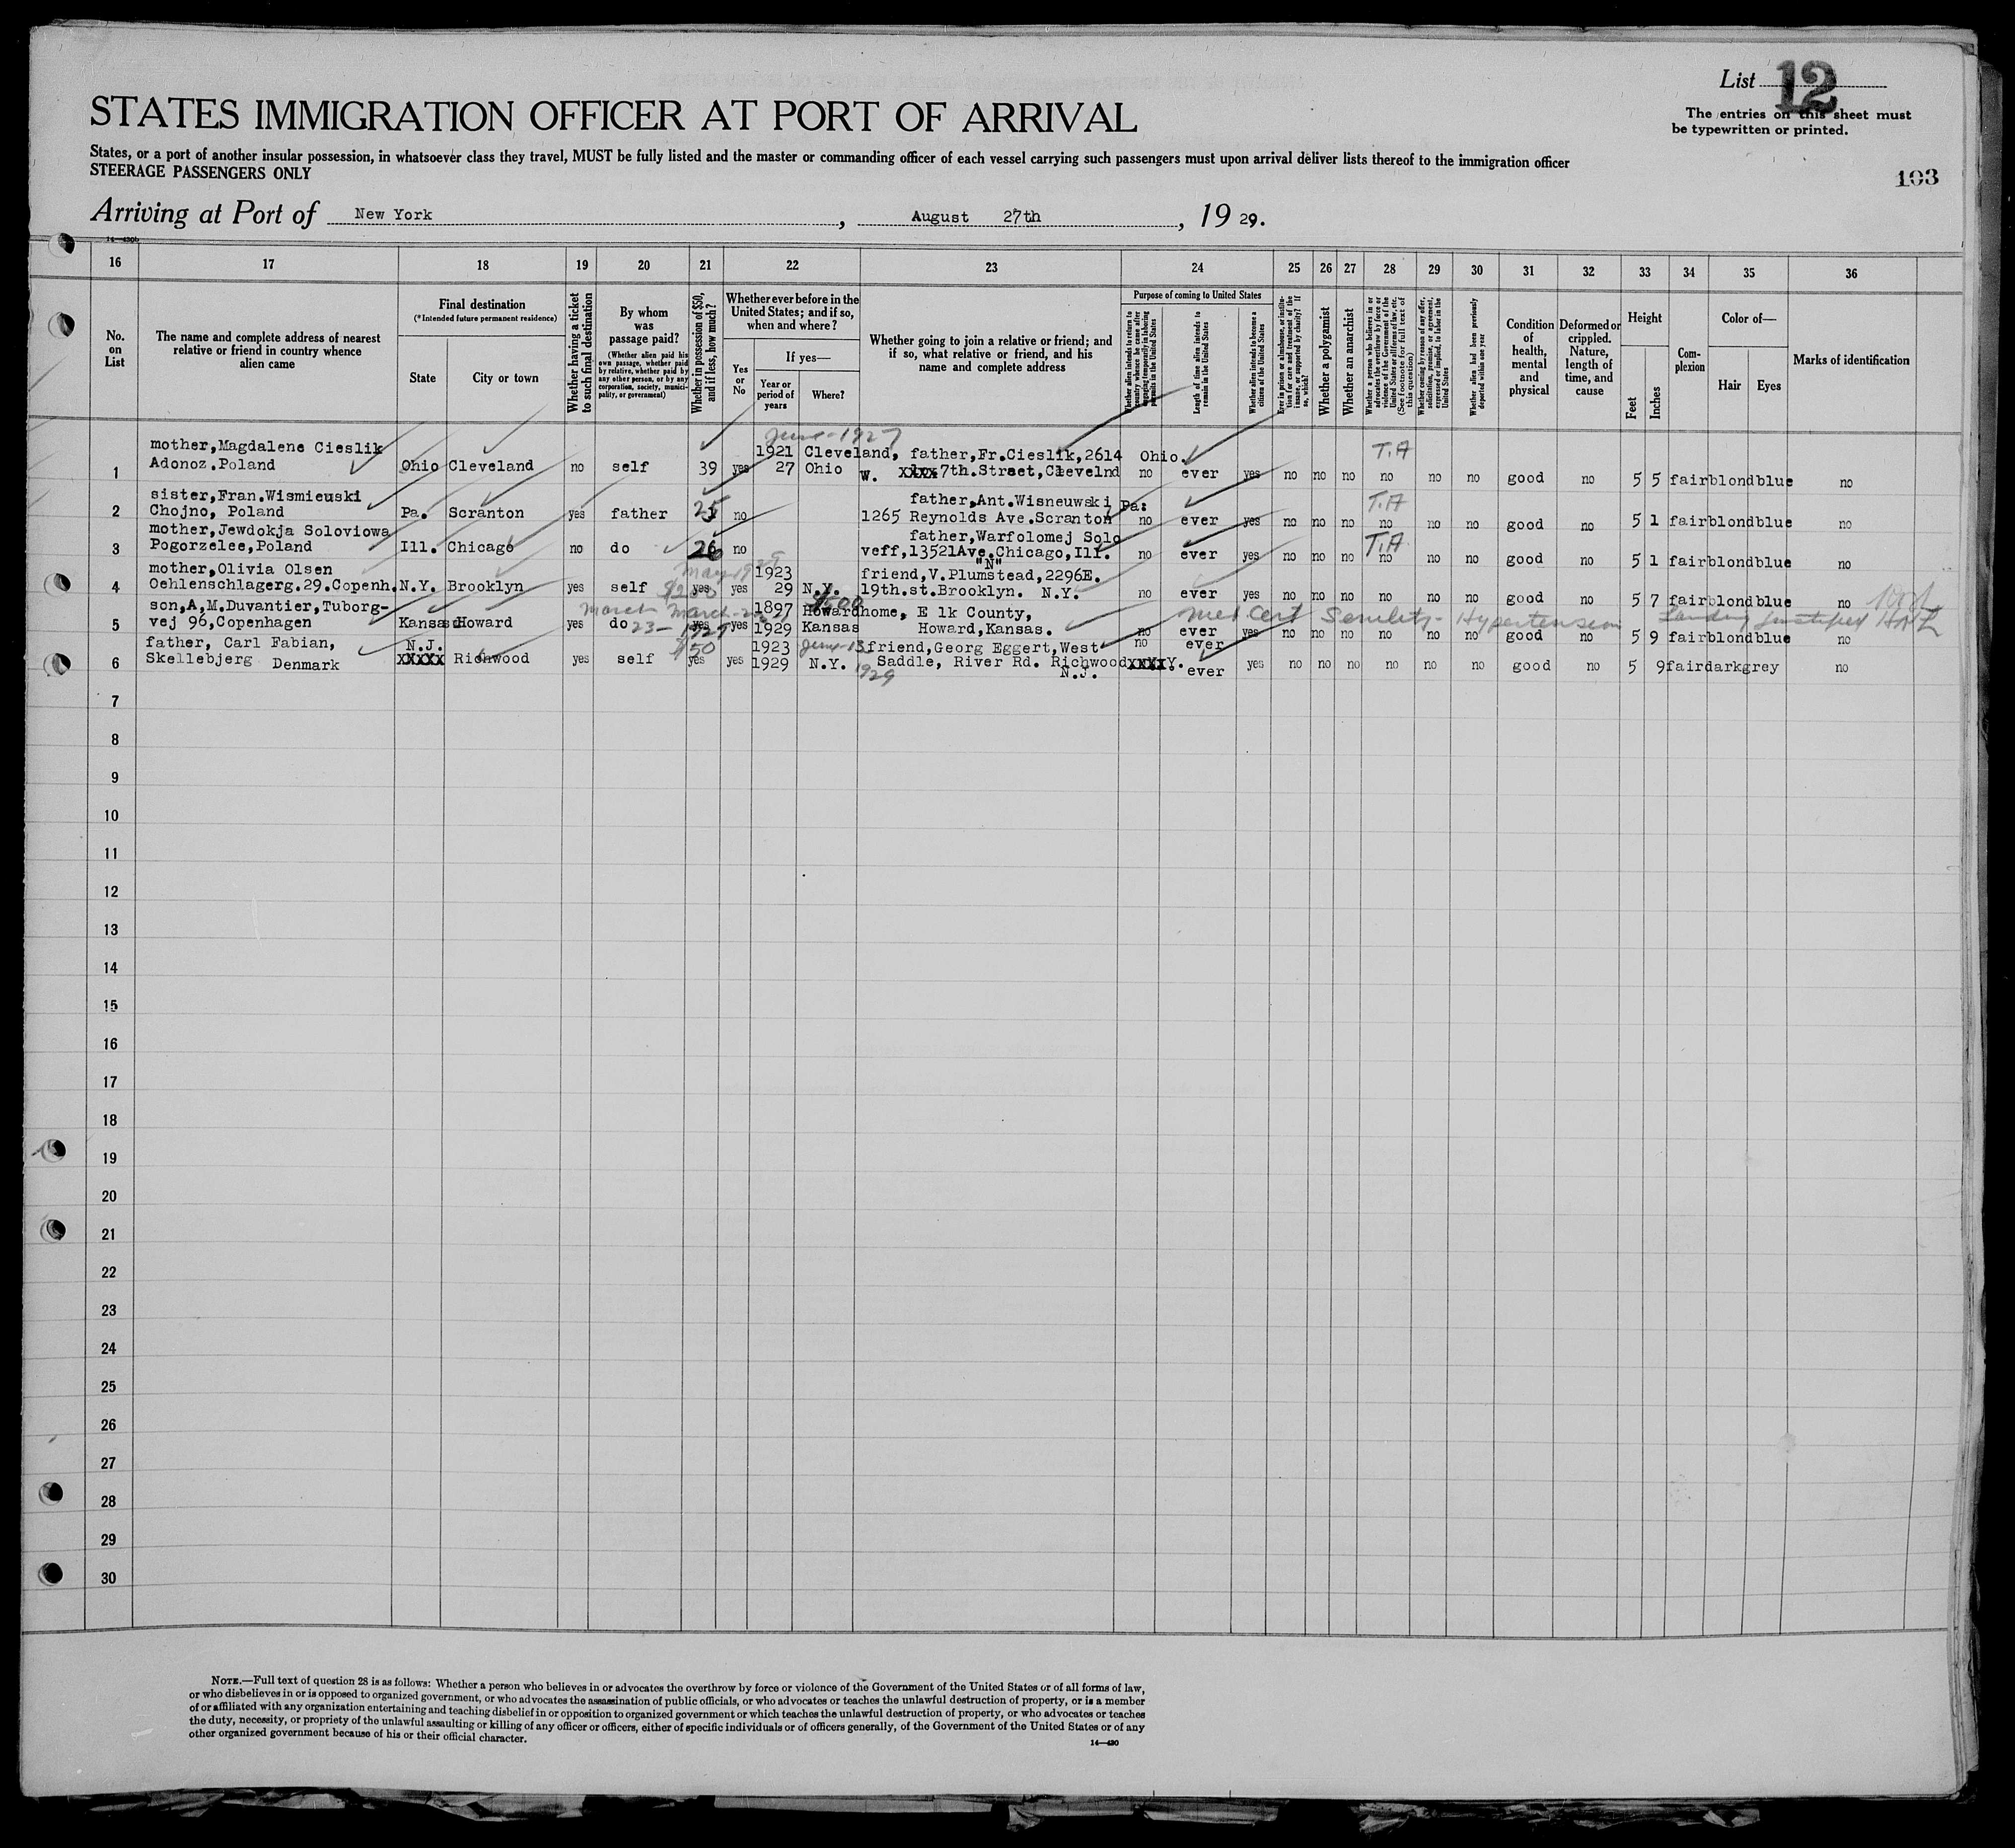 List 12
The entries on this sheet must
be typewritten or printed.
STATES IMMIGRATION OFFICER AT PORT OF ARRIVAL
States, or a port of another insular possession, in whatsoever class they travel, MUST be fully listed and the master or commanding officer of each vessel carrying such passengers must upon arrival deliver lists thereof to the immigration officer
STEERAGE PASSENGERS ONLY
103
Arriving at Port of New York, August 27th, 19 29.
16 17 18 19 20 21 22 23 24 25 26 27 28 29 30 31 32 33 34 35 36
No. on List
The name and complete address of nearest
relative or friend in country whence
alien came
Final destination
(*Intended future permanent residence)
State
City or town
Whether having a ticket
to such final destination
By whom
was
passage paid?
(Whether alien paid his
own passage, whether paid
by relative, whether paid by
any other person, or by any
corporation, society, munici-
pality, or government)
Whether in possession of $50,
and if less, how much?
Whether ever before in the
United States; and if so,
when and where?
Yes or No
If yes—
Year or
period of
years
Where?
Whether going to join a relative or friend; and
if so, what relative or friend, and his
name and complete address
Purpose of coming to United States
Whether alien intends to return to
country whence he came after
engaging temporarily in laboring
pursuits in the United States
Length of time alien intends to
remain in the United States
Whether alien intends to become a
citizen of the United States
Ever in prison or almshouse, or institu-
tion for care and treatment of the
insane, or supported by charity? If
so, which?
Whether a polygamist
Whether an anarchist
Whether a person who believes in or
advocates the overthrow by force or
violence of the Government of the
United States or all forms of law, etc.
(See footnote for full text of
this question)
Whether coming by reason of any offer,
solicitation, promise, or agreement,
expressed or implied, to labor in the
United States
Whether alien had been previously
deported within one year
Condition
of
health,
mental
and
physical
Deformed or
crippled.
Nature,
length of
time, and
cause
Height
Feet
Inches
Com-
plexion
Color of—
Hair
Eyes
Marks of identification
June-1927
mother,Magdalene Cieslik 1921 Cleveland, father,Fr.Cieslik,2614 Ohio. T.A
1 Adonoz.Poland Ohio Cleveland no self 39 yes 27 Ohio W. xxxx 7th.Street,Clevelnd no ever yes no no no no no no good no 5 5 fair blond blue no
sister,Fran.Wismieuski father,Ant.Wisneuwski Pa: T.A
2 Chojno, Poland Pa. Scranton yes father 25 no 1265 Reynolds Ave.Scranton no ever yes no no no no no no good no 5 1 fair blond blue no
mother,Jewdokja Soloviowa father,Warfolomej Solo T.A
3 Pogorzelee,Poland Ill. Chicago no do 26 no veff,13521Ave.Chicago,Ill. no ever yes no no no no no no good no 5 1 fair blond blue no
"N"
mother,Olivia Olsen 1923 friend,V.Plumstead,2296E.
4 Oehlenschlagerg.29.Copenh. N.Y. Brooklyn yes self yes yes 29 N.Y. 19th.st.Brooklyn. N.Y. no ever yes no no no no no no good no 5 7 fair blond blue no
son,A,M.Duvantier,Tuborg- March March 1897 Howard home, E lk County, med cert Senility - Hypertension
5 vej 96,Copenhagen Kansas Howard yes do 23- 1927 yes yes 1929 Kansas Howard,Kansas. no ever yes no no no no no no good no 5 9 fair blond blue no
father, Carl Fabian, N.J. $50 1923 June-13 friend,Georg Eggert,West no ever
6 Skellebjerg Denmark XXXXX Richwood yes self yes yes 1929 N.Y. 1929 Saddle, River Rd. Richwood xxxx Y. ever yes no no no no no no good no 5 9 fair dark grey no
N.J.
7
8
9
10
11
12
13
14
15
16
17
18
19
20
21
22
23
24
25
26
27
28
29
30
NOTE.—Full text of question 28 is as follows: Whether a person who believes in or advocates the overthrow by force or violence of the Government of the United States or of all forms of law,
or who disbelieves in or is opposed to organized government, or who advocates the assassination of public officials, or who advocates or teaches the unlawful destruction of property, or is a member
of or affiliated with any organization entertaining and teaching disbelief in or opposition to organized government or which teaches the unlawful destruction of property, or who advocates or teaches
the duty, necessity, or propriety of the unlawful assaulting or killing of any officer or officers, either of specific individuals or of officers generally, of the Government of the United States or of any
other organized government because of his or their official character.
14—430